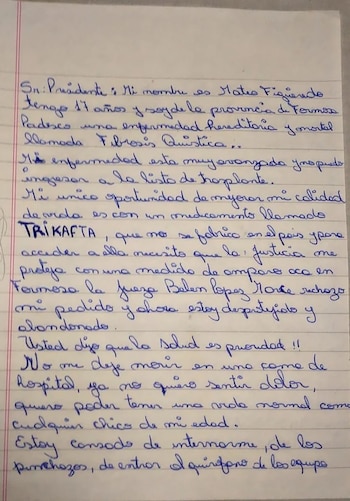 Sr: Presidente: Mi nombre es Mateo Figueredo
tengo 17 años y soy de la provincia de Formosa
Padesco una enfermedad hereditaria y mortal
llamada Fibrosis Quistica..
Mi enfermedad esta muy avanzada y no puedo
ingresar a la lista de trasplante.
Mi unica oportunidad de mejorar mi calidad
de vida es con un medicamento llamado
TRIKAFTA, que no se fabrica en el país y para
acceder a ella necesito que la Justicia me
proteja con una medida de amparo aca en
Formosa la Jueza Belen Lopez Mace rechazo
mi pedido y ahora estoy desprotejido y
abandonado.
Usted dijo que la salud es prioridad!!
No me deje morir en una cama de
hospital, ya no quiero sentir dolor,
quiero poder tener una vida normal como
cualquier chico de mi edad.
Estoy cansado de internarme, de los
pinchazos, de entrar al quirofano de los equipo